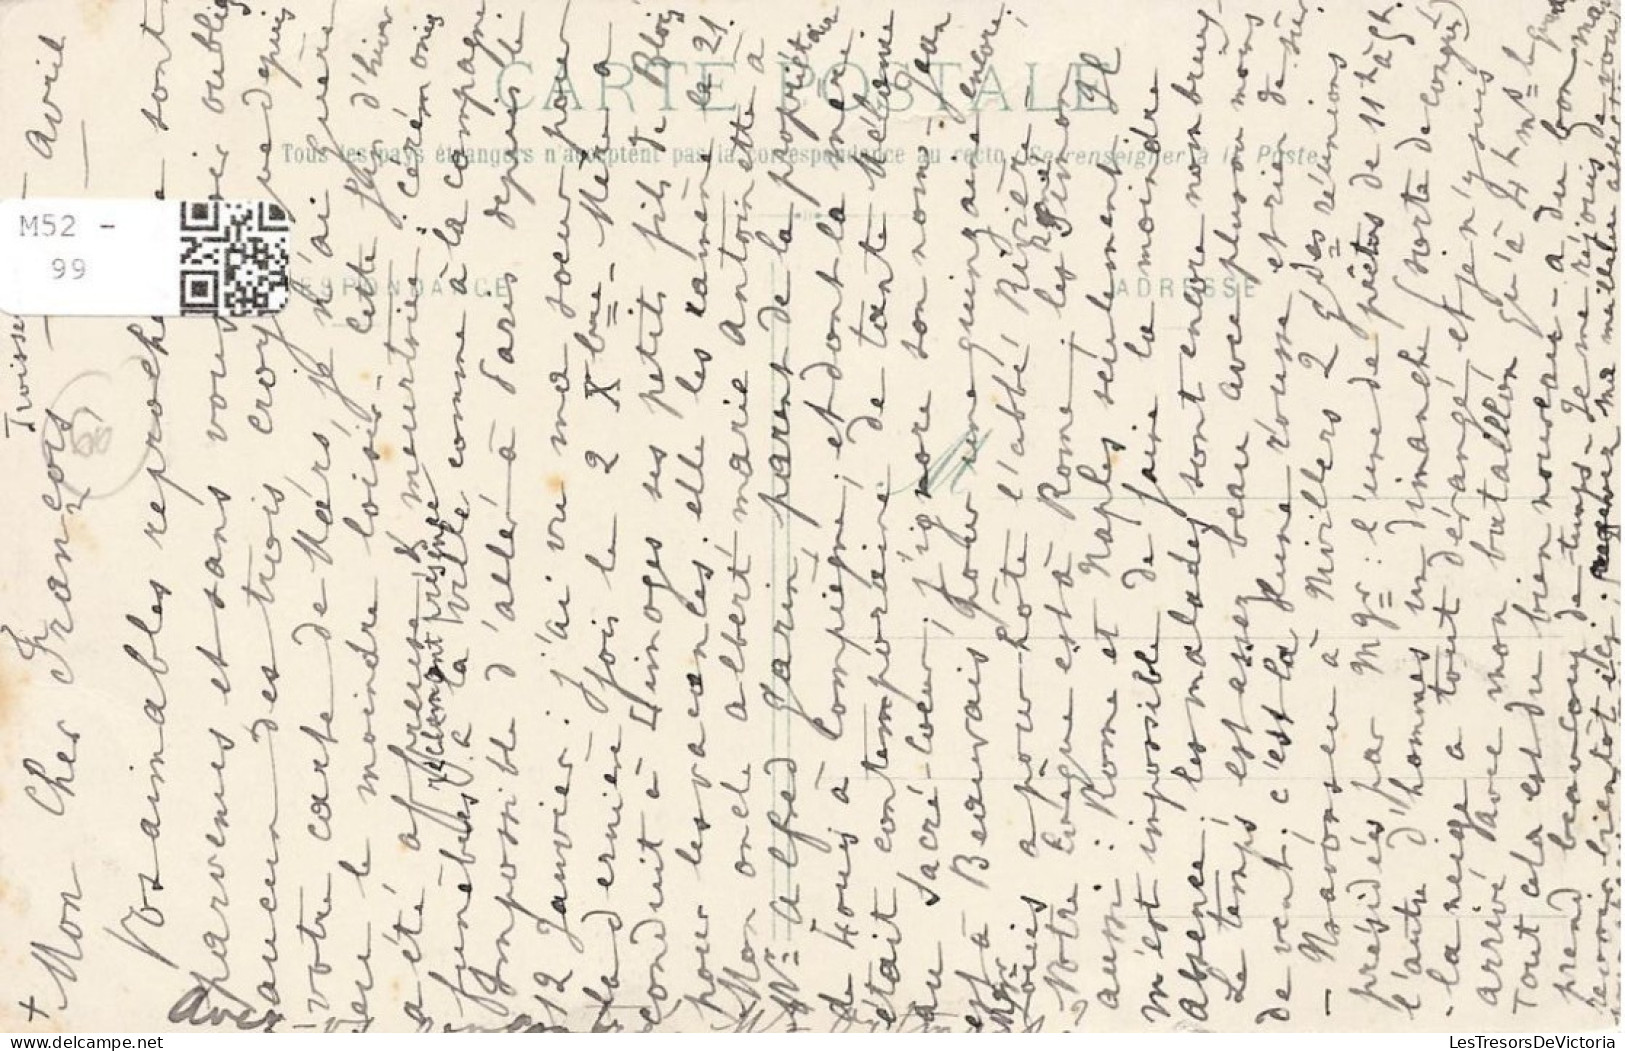 M52 -
99
CARTE POSTALE
Tous les pays étrangers n'acceptent pas la correspondance au recto (Se renseigner à la Poste
ESPONDANCE
ADRESSE
Avril
+ Mon Cher François
Vos aimables reproches me sont
parvenus et sans vous avoir oublié
aucun des trois croyez depuis
votre carte de Mars, je n'ai guère
eu le moindre loisir - cette fin d'hiver
a été affreuse & meurtrière : cérémonies
funèbres à la ville comme à la campagne
réclament présence
Impossible d'aller à Paris depuis le
12 Janvier : j'ai vu ma soeur pour
la dernière fois le 2 Xbre - Mère a
conduit à Limoges ses petits fils de Blois
pour les vacances, elle les ramène la 21.
Mon oncle Albert marie Antoinette à
Mr Alfred Garin, parent de la propriétaire
de Louis à Compiègne, et dont la mère
était contemporaine de tante Mélanie
au Sacré-Coeur, j'ignore son nom - Jean
est à Beauvais pour une quinzaine encore.
Louis a pour hôte l'abbé
Notre Evêque est à Rome, les
aussi : Rome et Naples seulement. Il
m'est impossible de faire la moindre
absence, les malades sont encore nombreux
Le temps est assez beau avec plus ou moins
de vent : c'est la lune rousse et rien de sûr.
- Nsavons eu à Mvillers 2 gdes réunions
présidées par Mgr : l'une de prêtres de 11h à 5h.
l'autre d'hommes un dimanche (sorte de congrès)
- la neige a tout dérangé, et je n'y suis
arrivé avec mon bataillon qu'à 4h
Tout cela est du bien nouveau - a du bon mais
prend beaucoup de temps - Je me réjouis de vous
revoir bientôt ici, ma meilleure
LesTresorsDeVictoria